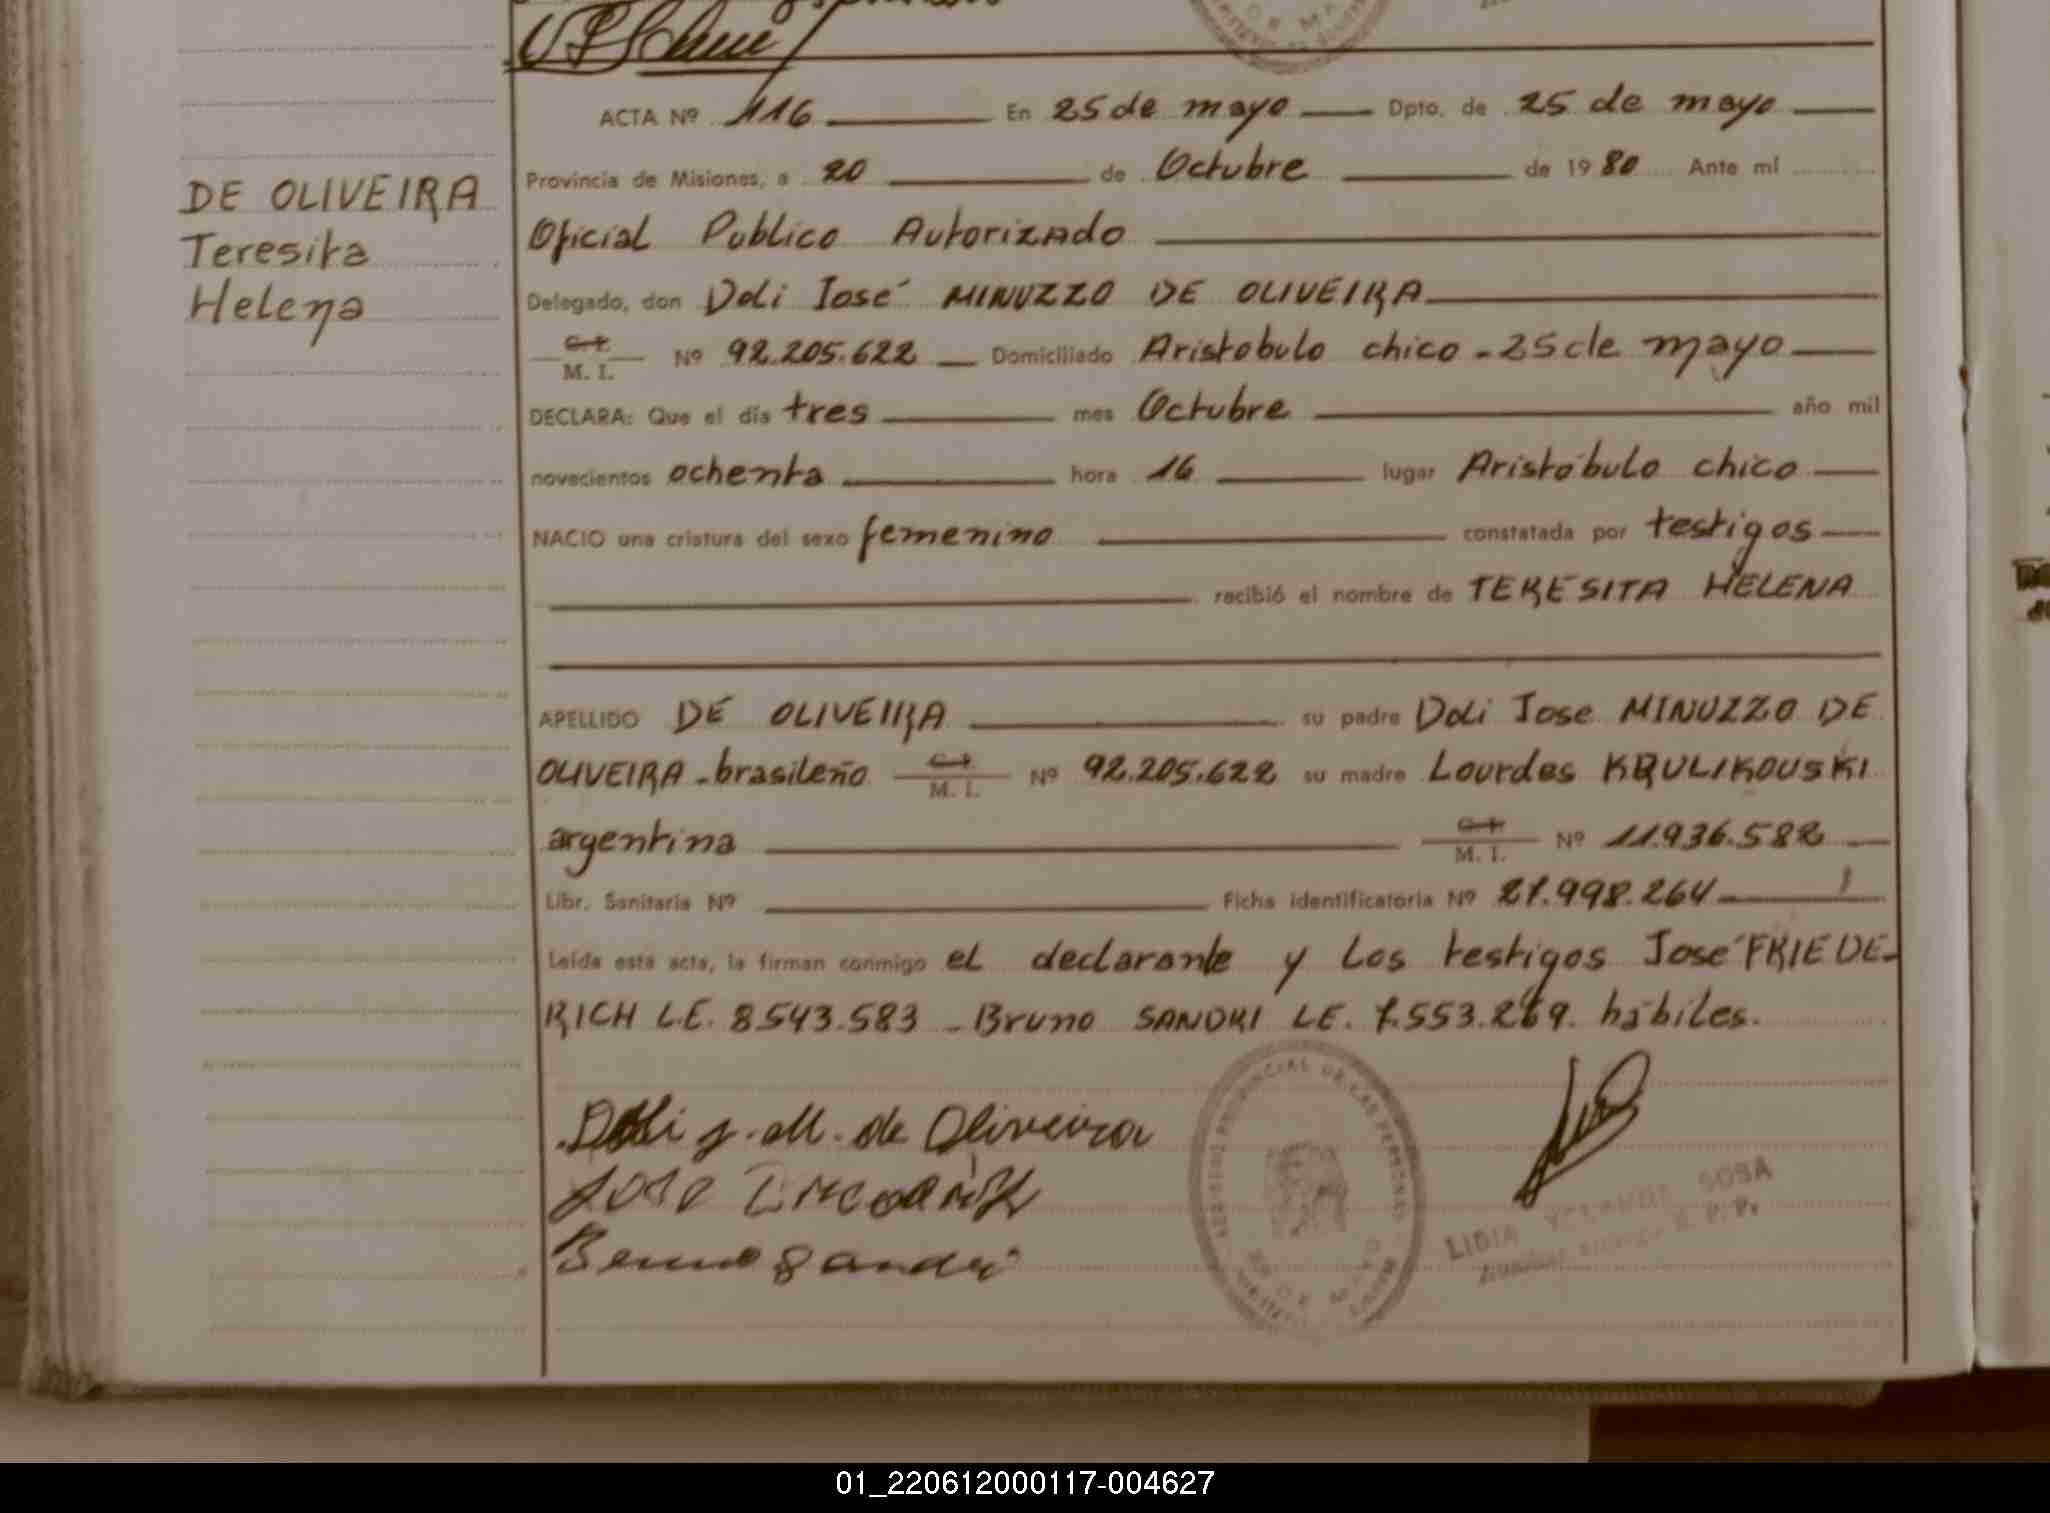 DE OLIVEIRA
Teresita
Helena
ACTA Nº 116 En 25 de mayo Dpto. de 25 de mayo
Provincia de Misiones, a 20 de Octubre de 1980 Ante mí
Oficial Publico Autorizado
Delegado, don Doli José MINUZZO DE OLIVEIRA
C. I. M. I. Nº 92.205.622 Domiciliado Aristobulo chico - 25 de mayo
DECLARA: Que el día tres mes Octubre año mil
novecientos ochenta hora 16 lugar Aristóbulo chico
NACIO una criatura del sexo femenino constatada por testigos
recibió el nombre de TERESITA HELENA
APELLIDO DE OLIVEIRA su padre Doli Jose MINUZZO DE
OLIVEIRA - brasileño C. I. M. I. Nº 92.205.622 su madre Lourdes KRULIKOUSKI
argentina C. I. M. I. Nº 11.936.582
Libr. Sanitaria Nº Ficha identificatoria Nº 27.998.264
Leída esta acta, la firman conmigo el declarante y los testigos José FRIEDE-
RICH L.E. 8.543.583 - Bruno SANDRI LE. 7.553.269. hábiles.
Doli J. M. de Oliveira
Jose
Bruno Sandri
LIDIA SOSA
01_220612000117-004627